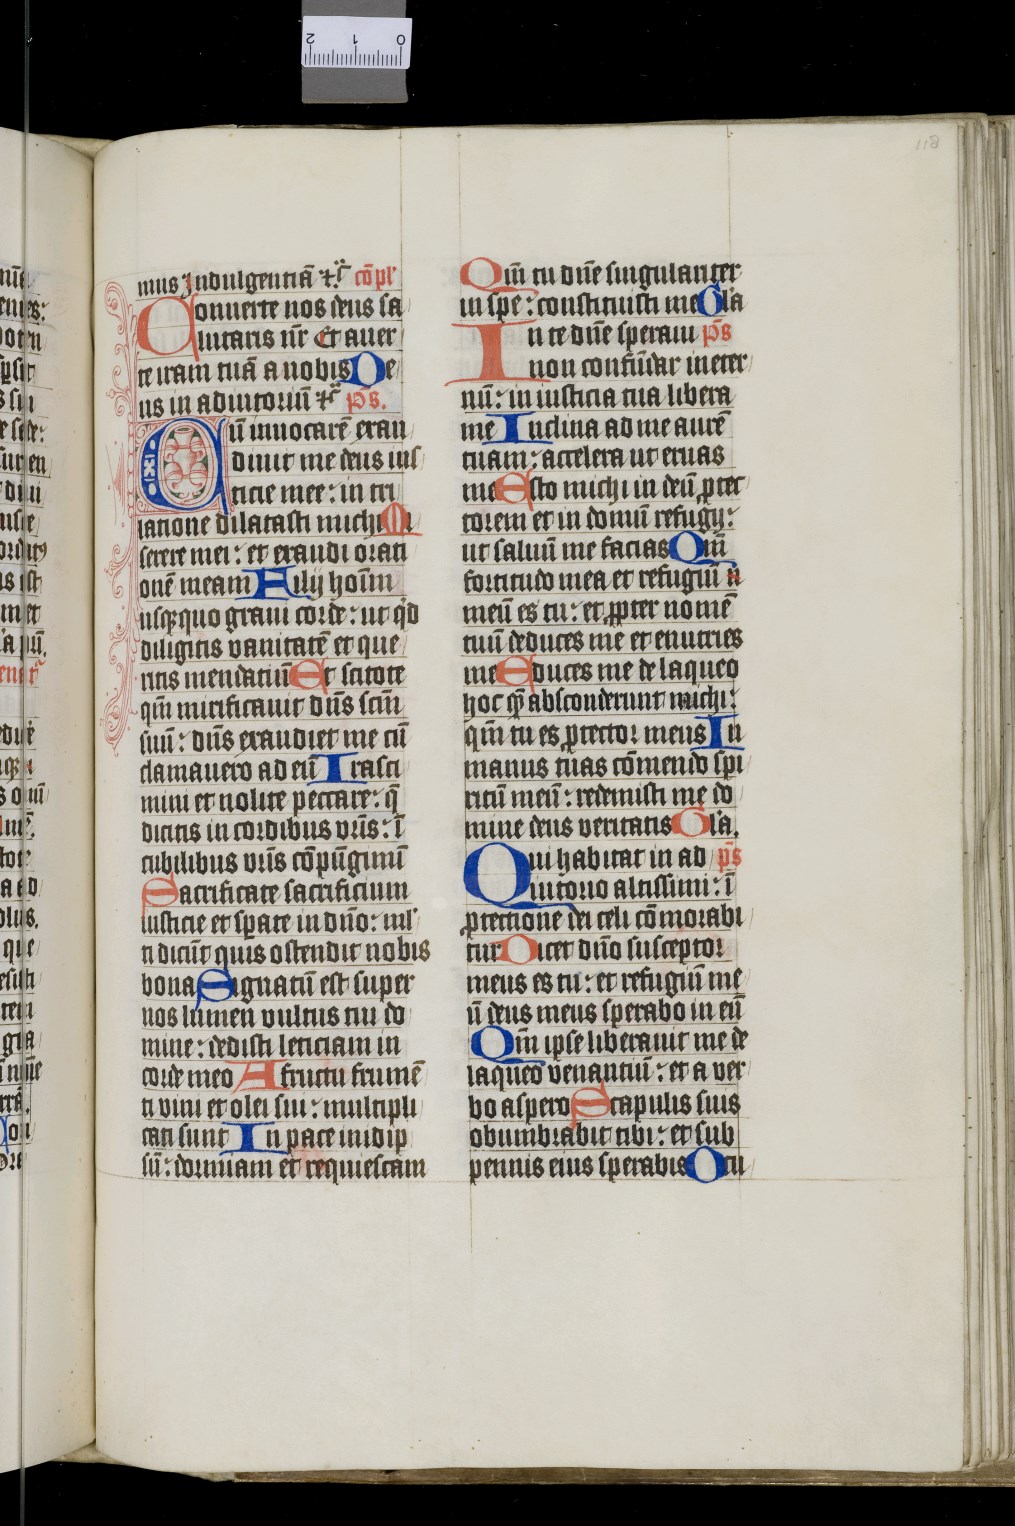 118
mus Indulgentiā ⁊c̄ cōpl'
Conuerte nos deus sa
lutaris nr̄ Et auer
te iram tuā a nobis De
us in adiutoriū ⁊c̄ ps.
Cū inuocarē exau
diuit me deus ius
ticie mee: in tri
latione dilatasti michi Mi
serere mei: et exaudi orati
onē meam Filij hoīm
usq̨quo graui corde: ut qd
diligitis vanitatē et que
ritis mendatiū Et scitote
qm̄ mirificauit dn̄s scm̄
suū: dn̄s exaudiet me cū
clamauero ad eū Irasci
mini et nolite peccare: q̄
dicitis in cordibus vrīs: ī
cubilibus vrīs cōpūgimī
Sacrificate sacrificium
iusticie et sꝑate in dn̄o: ml'
ti dicūt quis ostendit nobis
bona Signatū est super
nos lumen vultus tui do
mine: dedisti leticiam in
corde meo A fructu frumē
ti vini et olei sui: multipli
cati sunt In pace in idip
sū: dormiam et requiescam
Qm̄ tu dn̄e singulariter
in spe: constituisti me Gl'a
In te dn̄e speraui ps
non confūdar in eter
nū: in iusticia tua libera
me Inclina ad me aurē
tuam: accelera ut eruas
me Esto michi in deū ꝓtec
torem et in domū refugij:
ut saluū me facias Qm̄
fortitudo mea et refugiū n
meū es tu: et ꝓpter nomē
tuū deduces me et enutries
me Educes me de laqueo
hoc qͫ absconderunt michi:
qm̄ tu es ꝓtector meus In
manus tuas cōmendo spi
ritū meū: redemisti me do
mine deus veritatis Gl'a.
Qui habitat in ad ps
iutorio altissimi: ī
ꝓtectione dei celi cōmorabi
tur Dicet dn̄o susceptor
meus es tu: et refugiū me
ū deus meus sperabo in eū
Qm̄ ipse liberauit me de
laqueo venantiū: et a ver
bo aspero Scapulis suis
obumbrabit tibi: et sub
pennis eius sperabis Scu
0 1 2